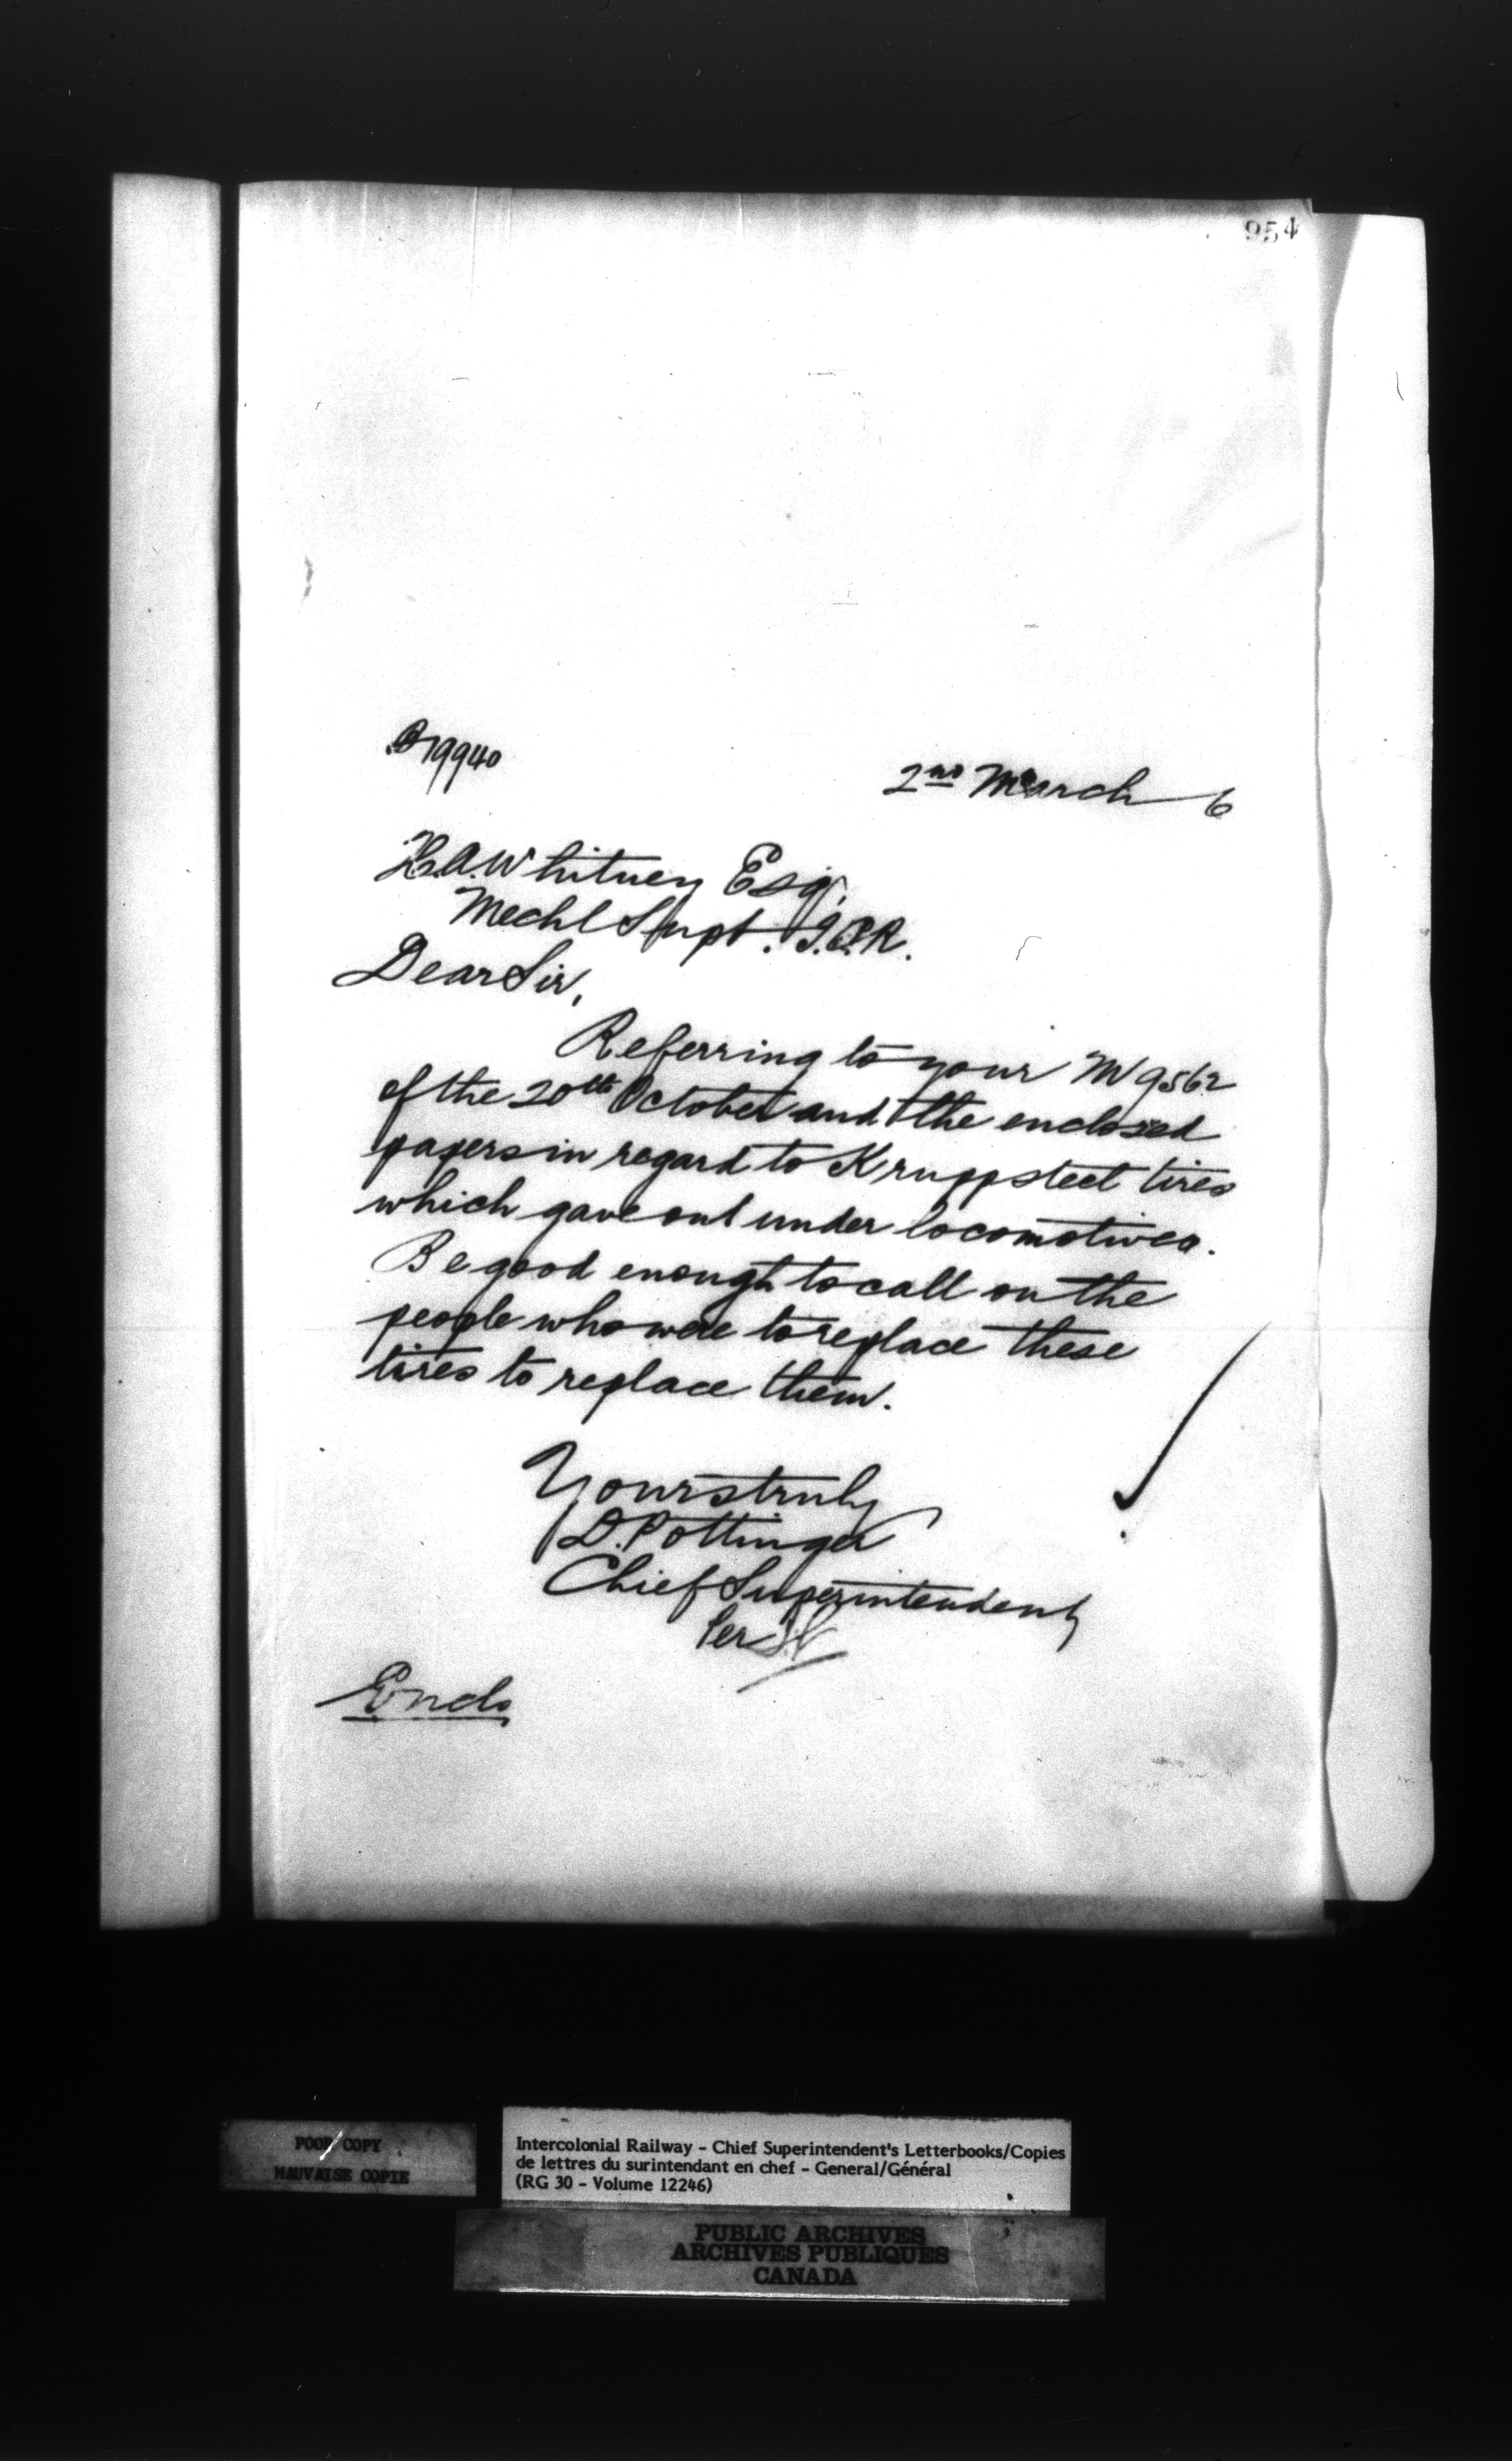 954
19940
2nd March 6
H.A. Whitney Esq,
Mechl Supt. I.C.R.
Dear Sir,
Referring to your M 9562
of the 20th October and the enclosed
papers in regard to Krupp steel tires
which gave out under locomotives.
Be good enough to call on the
people who were to replace these
tires to replace them.
Yours truly
D. Pottinger
Chief Superintendent
Per
Encls
POOR COPY
MAUVAISE COPIE
Intercolonial Railway - Chief Superintendent's Letterbooks/Copies
de lettres du surintendant en chef - General/Général
(RG 30 - Volume 12246)
PUBLIC ARCHIVES
ARCHIVES PUBLIQUES
CANADA